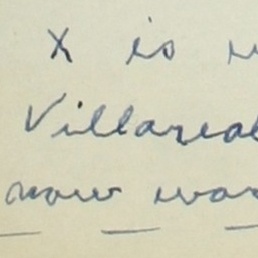 X is
Villareal
now